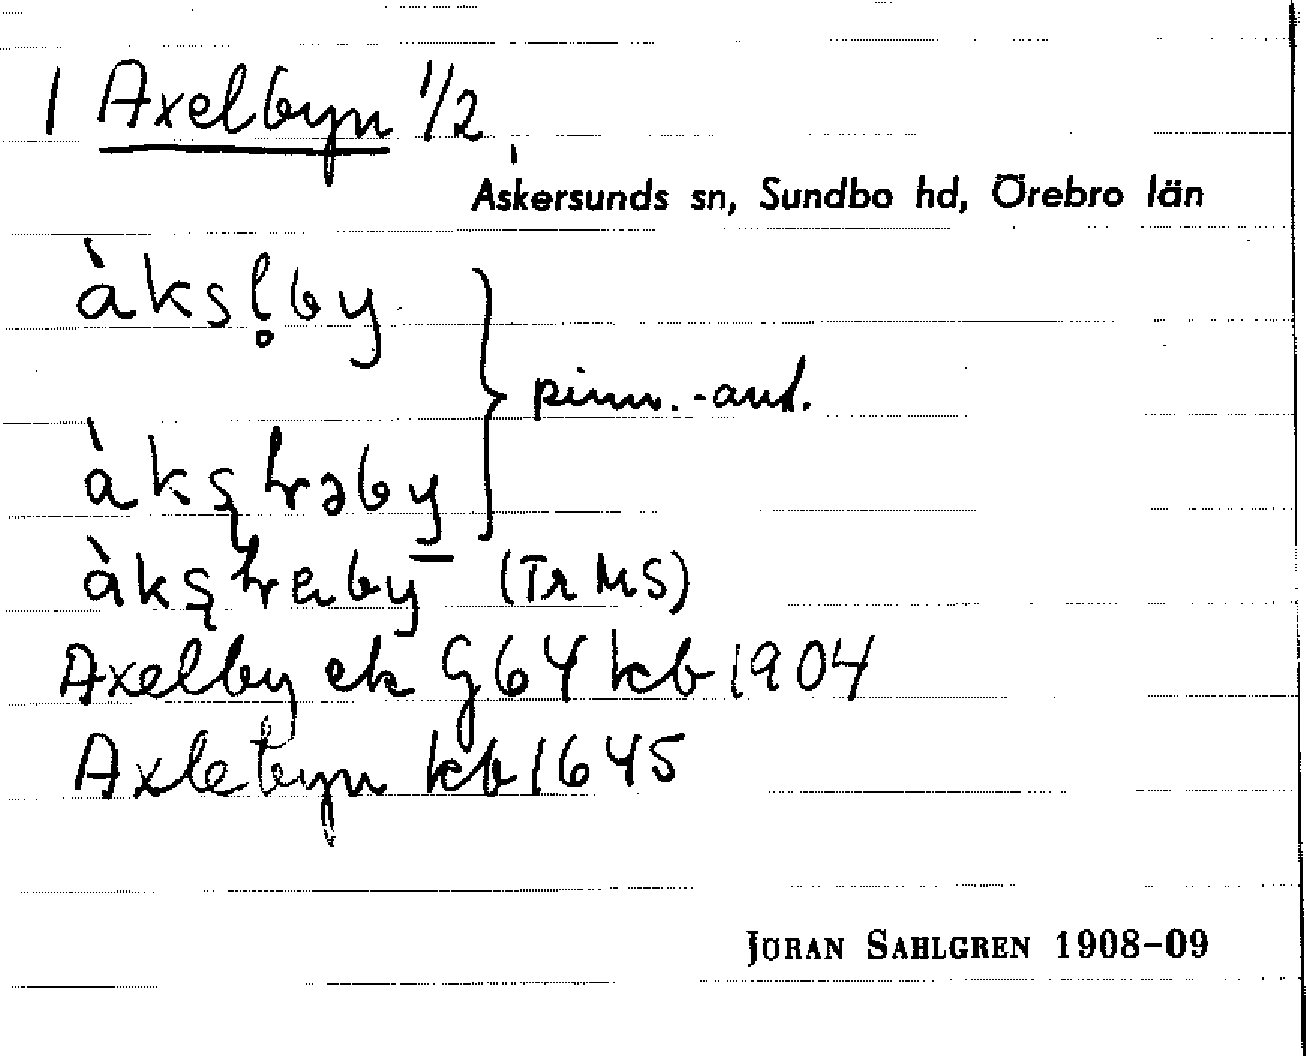 1 Axelbyn 1/2
Askersunds sn, Sundbo hd, Örebro län
àksl̥by
àkşhrəby
pinn.-and.
àkşhraby (Tr MS)
Axelby ek G64 kb 1904
Axlebyn kb 1645
JÖRAN SAHLGREN 1908-09